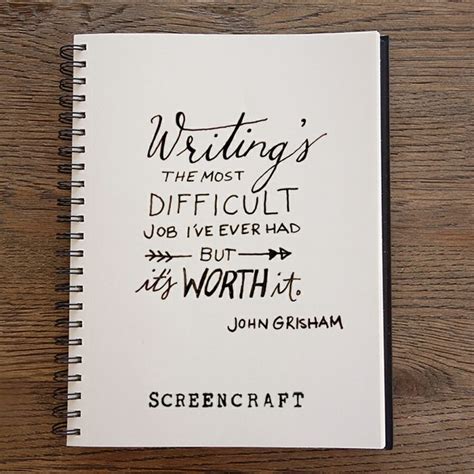 Writing's
THE MOST
DIFFICULT
JOB I'VE EVER HAD
BUT
it's WORTH it.
JOHN GRISHAM
SCREENCRAFT